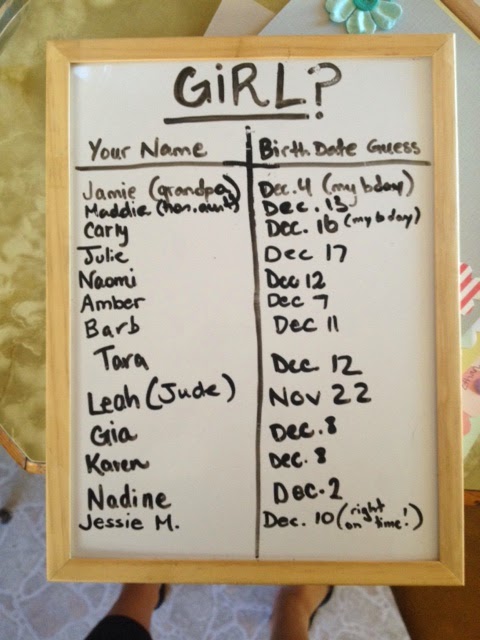 GiRL?
Your Name Birth Date Guess
Jamie (grandpa) Dec. 4 (my bday)
Maddie (hon. aunt) Dec. 13
Carly Dec. 16 (my bday)
Julie Dec 17
Naomi Dec 12
Amber Dec 7
Barb Dec 11
Tara Dec 12
Leah (Jude) Nov 22
Gia Dec. 8
Karen Dec. 8
Nadine Dec. 2
Jessie M. Dec. 10 (right on time!)